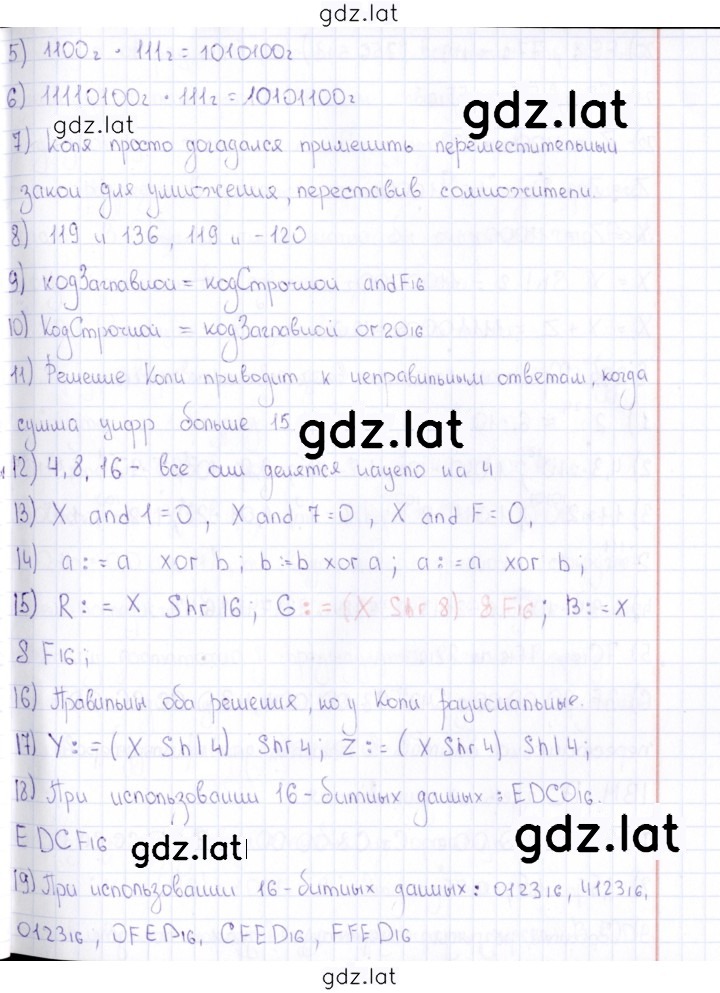 gdz.lat
5) 1100₂ · 111₂ = 1010100₂
6) 11110100₂ · 111₂ = 10101100₂
gdz.lat
gdz.lat
7) Коля просто догадался применить переместительный
закон для умножения, переставив сомножители.
8) 119 и 136, 119 и -120
9) кодЗаглавной = кодСтрочной and F16
10) КодСтрочной = кодЗаглавной or 2016
11) Решение Коли приводит к неправильным ответам, когда
сумма цифр больше 15
gdz.lat
12) 4, 8, 16 - все они делятся нацело на 4
13) X and 1 = 0, X and 7 = 0, X and F = 0,
14) a: = a xor b; b:=b xor a; a: = a xor b;
15) R: = X Shr 16; G: = (X Shr 8) 8 F16; B: = X
8 F16;
16) Правильны оба решения, но у Коли рациональные.
17) Y: = (X Shl 4) Shr 4; Z: = (X Shr 4) Shl 4;
18) При использовании 16-битных данных: EDCO16.
EDCF16
gdz.lat
gdz.lat
19) При использовании 16-битных данных: 012316, 412316,
012316, OFED16, CFED16, FFED16
gdz.lat